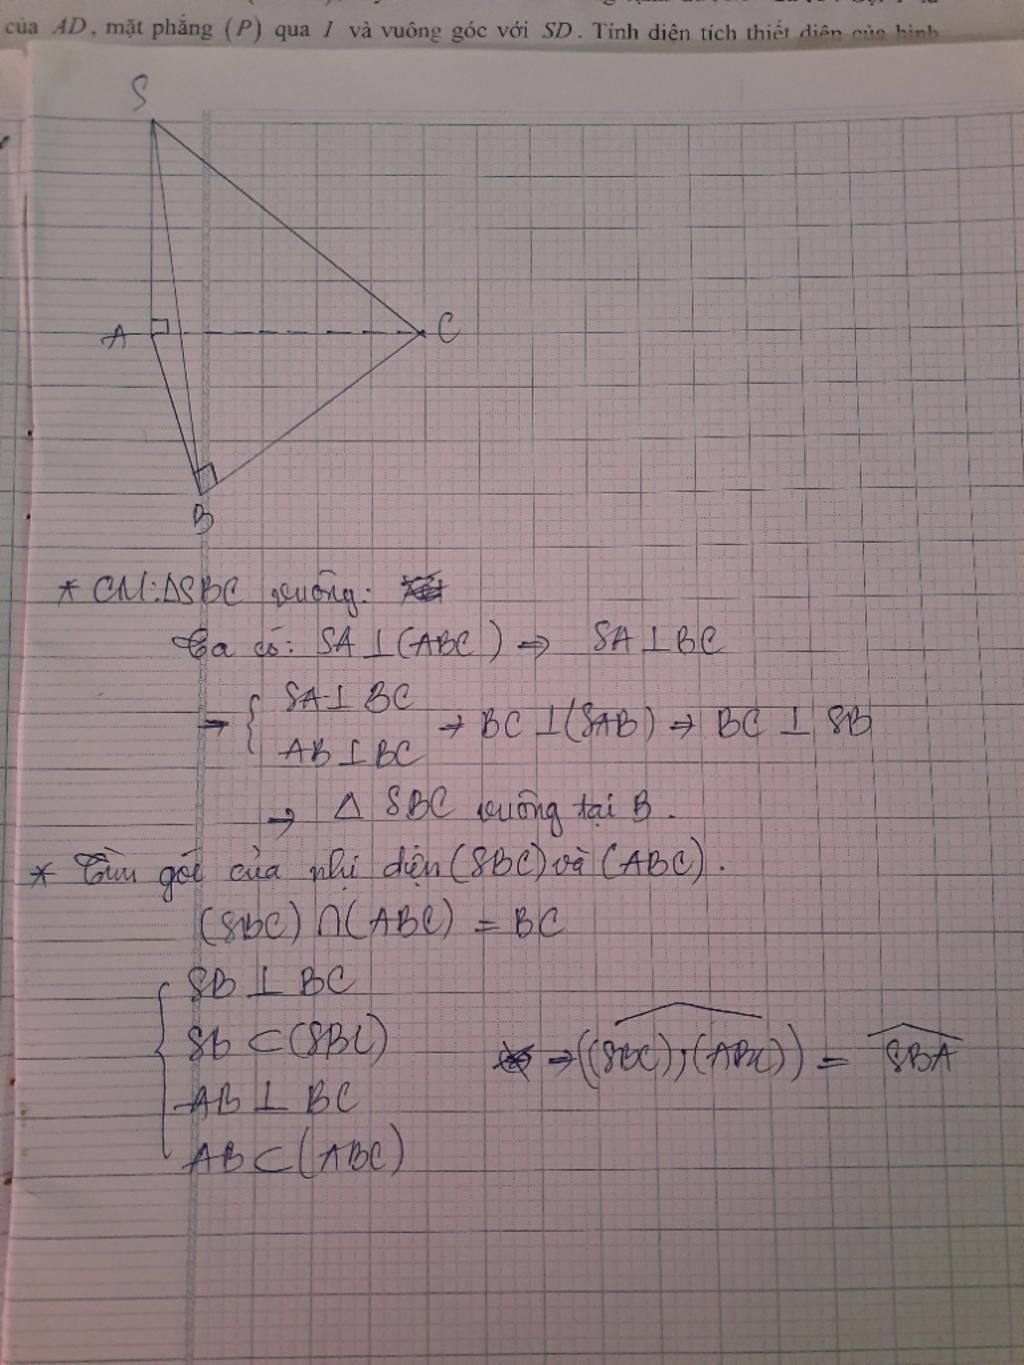 của AD, mặt phẳng (P) qua I và vuông góc với SD. Tính diện tích thiết diện của hình
S
A
C
B
* CM: ΔSBC vuông:
Ta có: SA ⊥ (ABC) ⇒ SA ⊥ BC
→ { SA ⊥ BC
AB ⊥ BC → BC ⊥ (SAB) → BC ⊥ SB
→ Δ SBC vuông tại B.
* Tìm góc của nhị diện (SBC) và (ABC).
(SBC) ∩ (ABC) = BC
{ SB ⊥ BC
SB ⊂ (SBC)
AB ⊥ BC
AB ⊂ (ABC)
⇒ ((SBC); (ABC)) = SBA